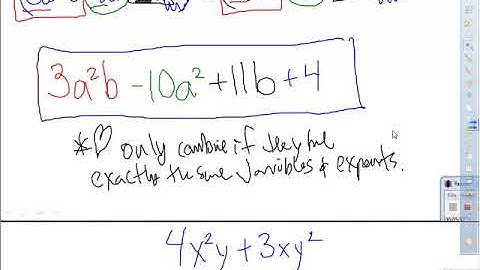 3a²b -10a² +11b +4
*♡ only combine if they have
exactly the same variables & exponents.
4x²y + 3xy²